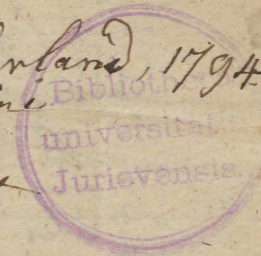 erland, 1794
Bibliothe
universitat
Jurievensis.